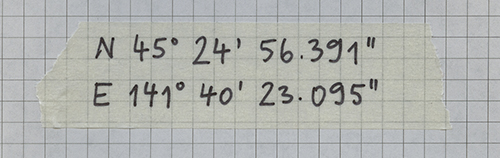 N 45° 24' 56.391"
E 141° 40' 23.095"